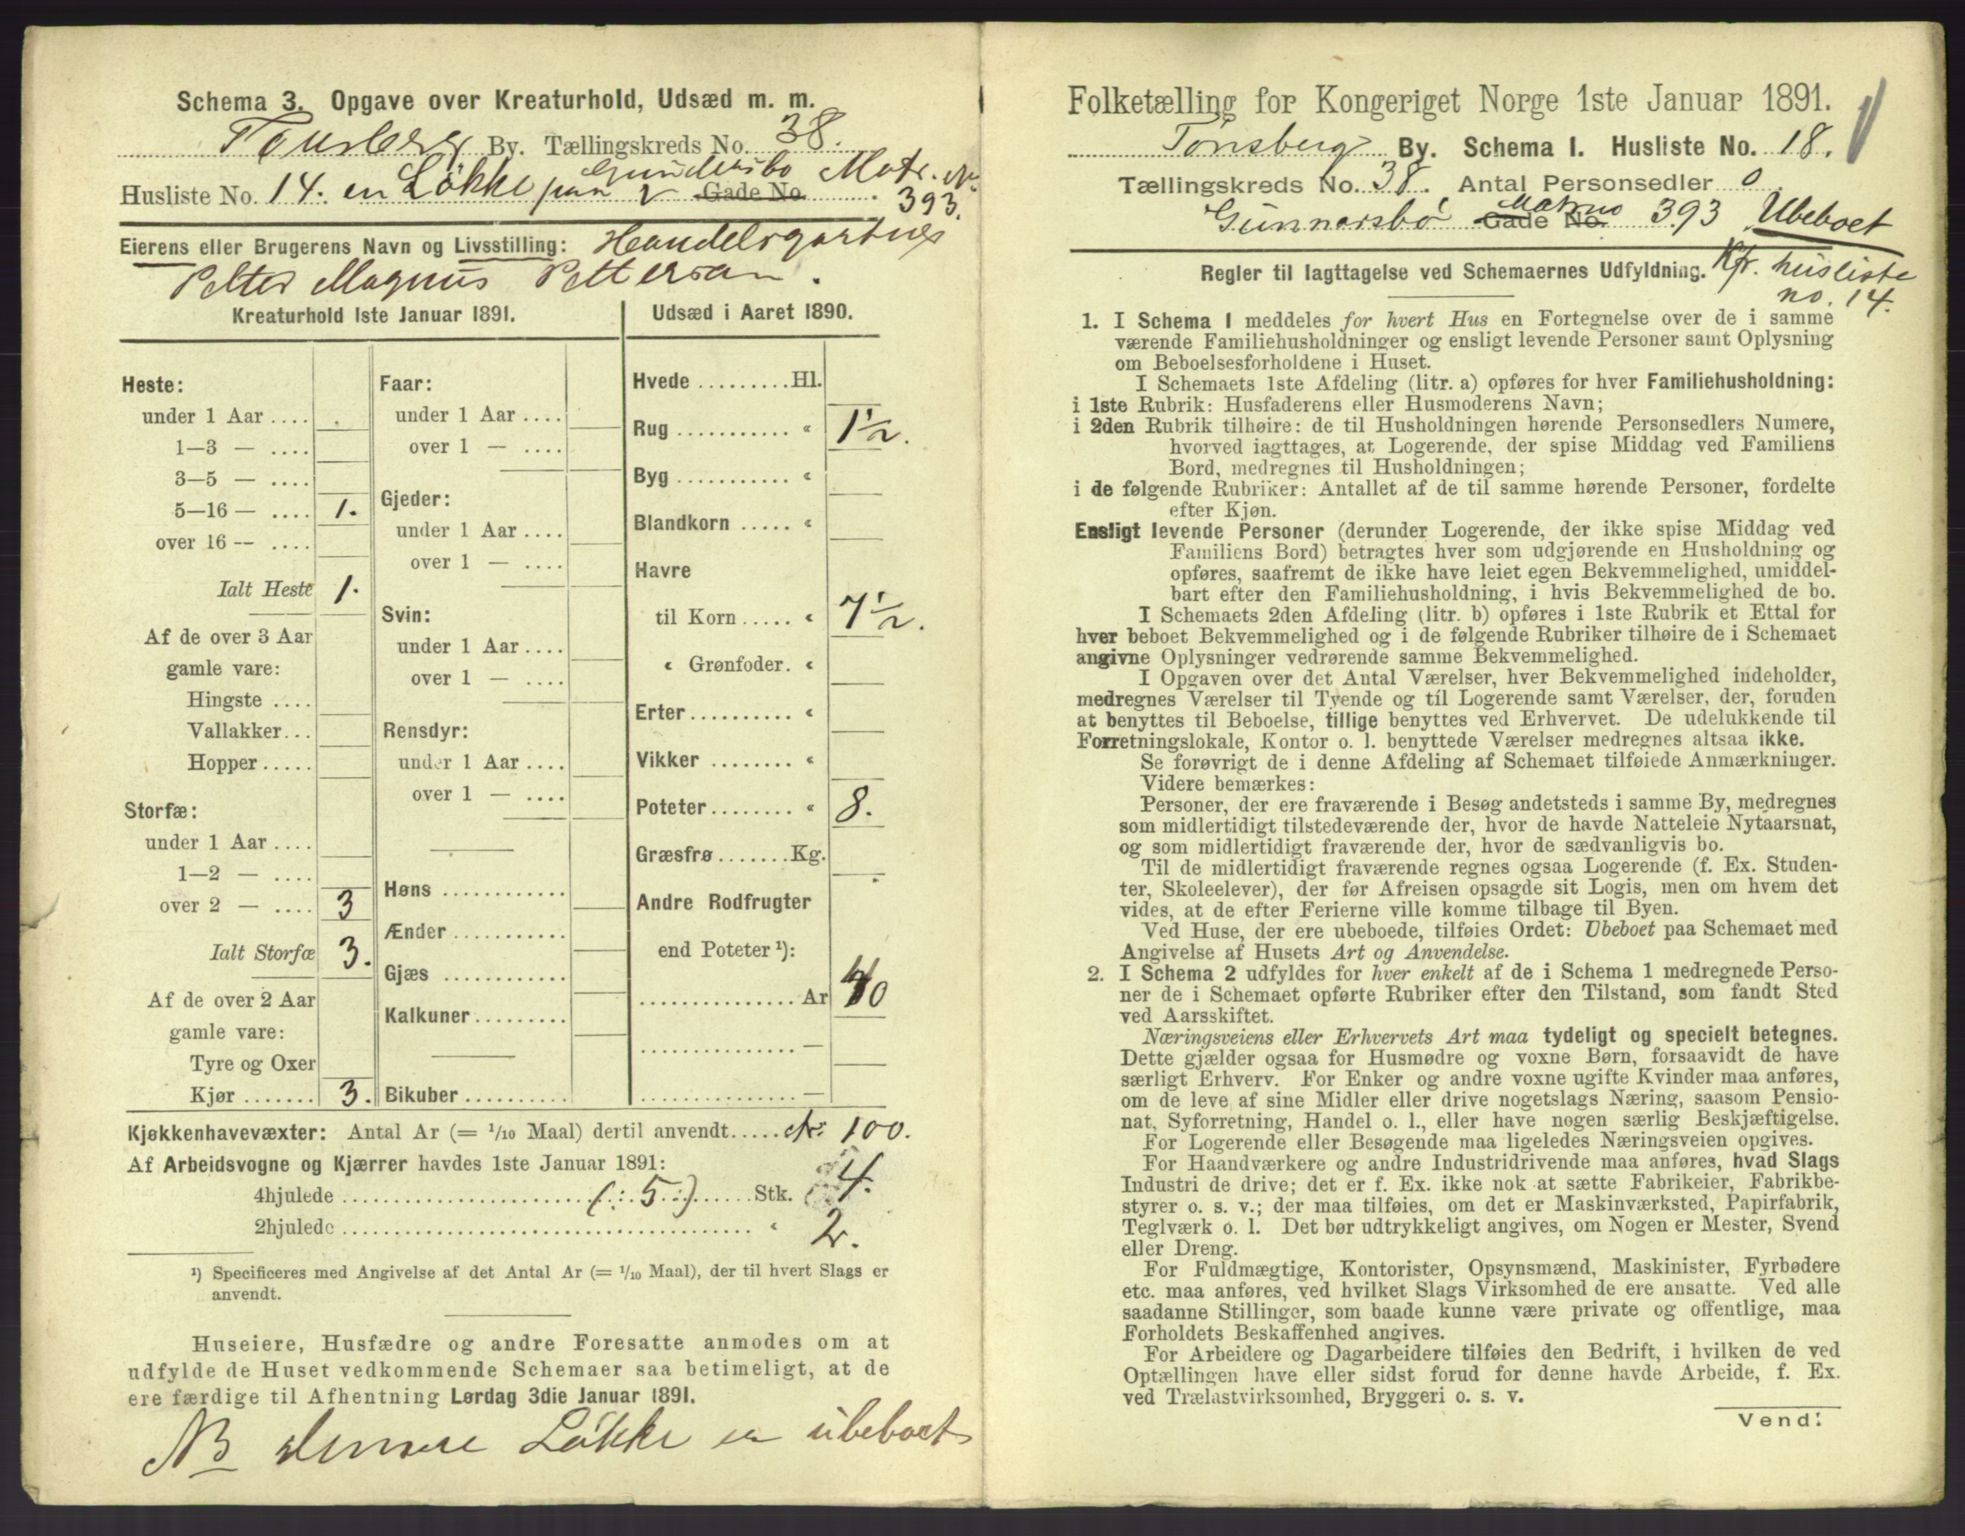 Schema 3. Opgave over Kreaturhold, Udsæd m. m.
Tønsberg By. Tællingskreds No. 38.
Husliste No. 14. en Løkke paa Gundersbo Gade No. Matr. No 393.
Eierens eller Brugerens Navn og Livsstilling: Handelsgartner
Petter Magnus Petterson.
Kreaturhold 1ste Januar 1891.
Heste:
under 1 Aar ....
1—3 — ....
3—5 — ....
5—16 — .... 1.
over 16 — ....
Ialt Heste 1.
Af de over 3 Aar
gamle vare:
Hingste ....
Vallakker...
Hopper.....
Storfæ:
under 1 Aar ....
1—2 — ....
over 2 — .... 3
Ialt Storfæ 3.
Af de over 2 Aar
gamle vare:
Tyre og Oxer
Kjør ....... 3.
Faar:
under 1 Aar ....
over 1 — ....
Gjeder:
under 1 Aar ....
over 1 — ....
Svin:
under 1 Aar ....
over 1 — ....
Rensdyr:
under 1 Aar ....
over 1 — ....
Høns ............
Ænder ...........
Gjæs ............
Kalkuner.........
Bikuber..........
Udsæd i Aaret 1890.
Hvede .........Hl.
Rug ........... « 1½.
Byg ........... «
Blandkorn ..... «
Havre
til Korn..... « 7½.
« Grønfoder. «
Erter.......... «
Vikker ........ «
Poteter........ « 8.
Græsfrø.......Kg.
Andre Rodfrugter
end Poteter ¹):
...............Ar 40
............... —
............... —
Kjøkkenhavevæxter: Antal Ar (= 1/10 Maal) dertil anvendt..... Ar 100.
Af Arbeidsvogne og Kjærrer havdes 1ste Januar 1891:
4hjulede ........(: 5 :)...... Stk. 4.
2hjulede ........................ « 2.
¹) Specificeres med Angivelse af det Antal Ar (= 1/10 Maal), der til hvert Slags er
anvendt.
Huseiere, Husfædre og andre Foresatte anmodes om at
udfylde de Huset vedkommende Schemaer saa betimeligt, at de
ere færdige til Afhentning Lørdag 3die Januar 1891.
NB denne Løkke er ubeboet
Folketælling for Kongeriget Norge 1ste Januar 1891.
Tønsberg By. Schema I. Husliste No. 18.
Tællingskreds No. 38. Antal Personsedler 0
Gunnarsbø Gade No. Matr no 393 Ubeboet
Regler til Iagttagelse ved Schemaernes Udfyldning. Kfr. husliste
no. 14.
1. I Schema 1 meddeles for hvert Hus en Fortegnelse over de i samme
værende Familiehusholdninger og ensligt levende Personer samt Oplysning
om Beboelsesforholdene i Huset.
I Schemaets 1ste Afdeling (litr. a) opføres for hver Familiehusholdning:
i 1ste Rubrik: Husfaderens eller Husmoderens Navn;
i 2den Rubrik tilhøire: de til Husholdningen hørende Personsedlers Numere,
hvorved iagttages, at Logerende, der spise Middag ved Familiens
Bord, medregnes til Husholdningen;
i de følgende Rubriker: Antallet af de til samme hørende Personer, fordelte
efter Kjøn.
Ensligt levende Personer (derunder Logerende, der ikke spise Middag ved
Familiens Bord) betragtes hver som udgjørende en Husholdning og
opføres, saafremt de ikke have leiet egen Bekvemmelighed, umiddel-
bart efter den Familiehusholdning, i hvis Bekvemmelighed de bo.
I Schemaets 2den Afdeling (litr. b) opføres i 1ste Rubrik et Ettal for
hver beboet Bekvemmelighed og i de følgende Rubriker tilhøire de i Schemaet
angivne Oplysninger vedrørende samme Bekvemmelighed.
I Opgaven over det Antal Værelser, hver Bekvemmelighed indeholder,
medregnes Værelser til Tyende og til Logerende samt Værelser, der, foruden
at benyttes til Beboelse, tillige benyttes ved Erhvervet. De udelukkende til
Forretningslokale, Kontor o. l. benyttede Værelser medregnes altsaa ikke.
Se forøvrigt de i denne Afdeling af Schemaet tilføiede Anmærkninger.
Videre bemærkes:
Personer, der ere fraværende i Besøg andetsteds i samme By, medregnes
som midlertidigt tilstedeværende der, hvor de havde Natteleie Nytaarsnat,
og som midlertidigt fraværende der, hvor de sædvanligvis bo.
Til de midlertidigt fraværende regnes ogsaa Logerende (f. Ex. Studen-
ter, Skoleelever), der før Afreisen opsagde sit Logis, men om hvem det
vides, at de efter Ferierne ville komme tilbage til Byen.
Ved Huse, der ere ubeboede, tilføies Ordet: Ubeboet paa Schemaet med
Angivelse af Husets Art og Anvendelse.
2. I Schema 2 udfyldes for hver enkelt af de i Schema 1 medregnede Perso-
ner de i Schemaet opførte Rubriker efter den Tilstand, som fandt Sted
ved Aarsskiftet.
Næringsveiens eller Erhvervets Art maa tydeligt og specielt betegnes.
Dette gjælder ogsaa for Husmødre og voxne Børn, forsaavidt de have
særligt Erhverv. For Enker og andre voxne ugifte Kvinder maa anføres,
om de leve af sine Midler eller drive nogetslags Næring, saasom Pensio-
nat, Syforretning, Handel o. l., eller have nogen særlig Beskjæftigelse.
For Logerende eller Besøgende maa ligeledes Næringsveien opgives.
For Haandværkere og andre Industridrivende maa anføres, hvad Slags
Industri de drive; det er f. Ex. ikke nok at sætte Fabrikeier, Fabrikbe-
styrer o. s. v.; der maa tilføies, om det er Maskinværksted, Papirfabrik,
Teglværk o. l. Det bør udtrykkeligt angives, om Nogen er Mester, Svend
eller Dreng.
For Fuldmægtige, Kontorister, Opsynsmænd, Maskinister, Fyrbødere
etc. maa anføres, ved hvilket Slags Virksomhed de ere ansatte. Ved alle
saadanne Stillinger, som baade kunne være private og offentlige, maa
Forholdets Beskaffenhed angives.
For Arbeidere og Dagarbeidere tilføies den Bedrift, i hvilken de ved
Optællingen have eller sidst forud for denne havde Arbeide, f. Ex.
ved Trælastvirksomhed, Bryggeri o. s. v.
Vend!